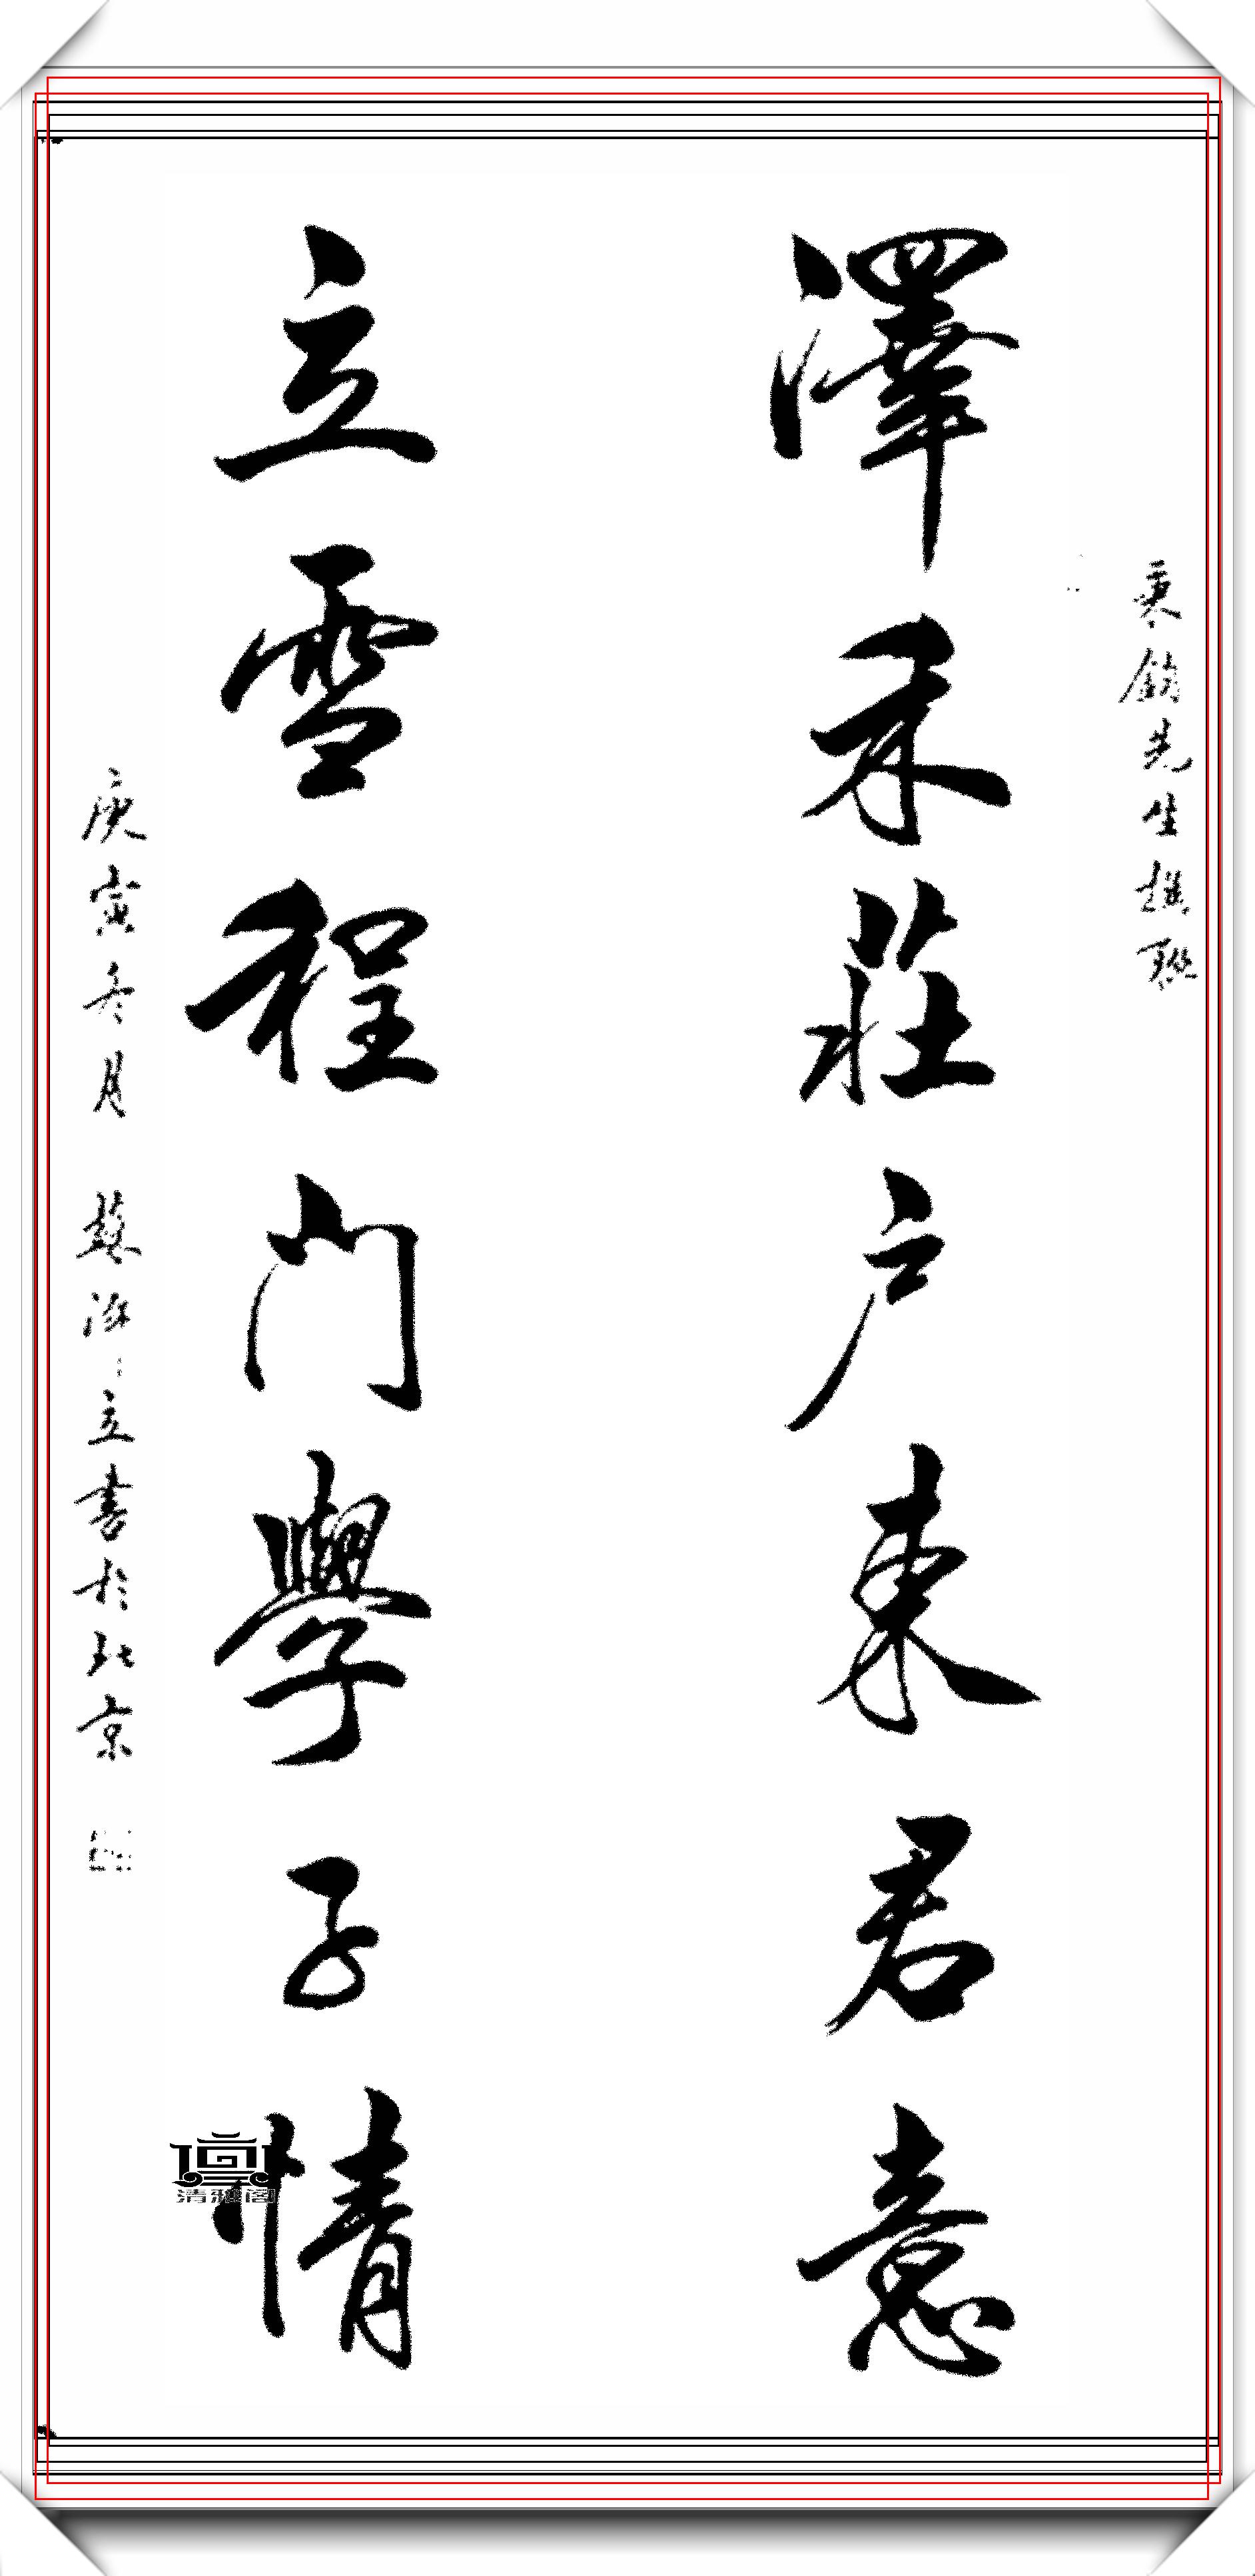 澤禾莊户東君意
秉鈞先生撰聯
立雪程門學子情
庚寅冬月
立書於北京
清雅阁